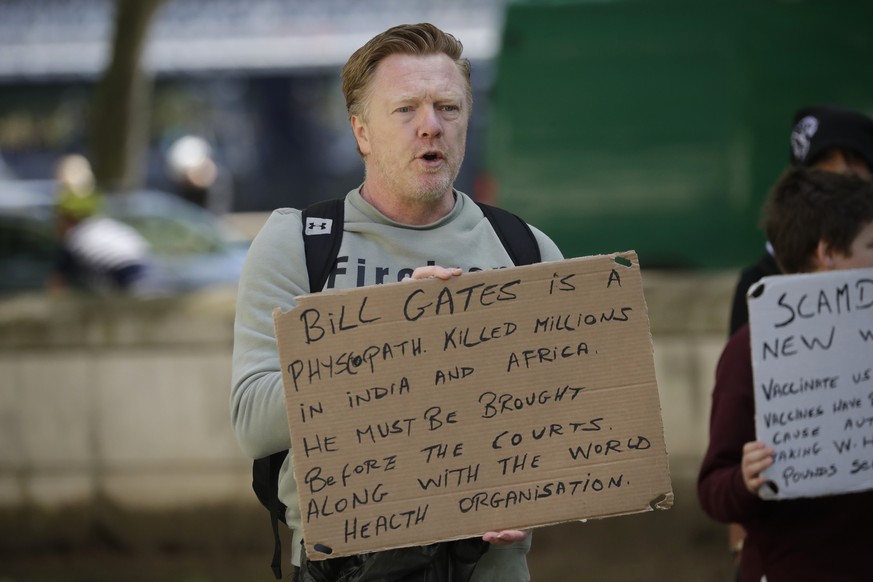 Firetrap
BILL GATES IS A
PHYSCOPATH. KILLED MILLIONS
IN INDIA AND AFRICA.
HE MUST BE BROUGHT
BEFORE THE COURTS.
ALONG WITH THE WORLD
HEALTH ORGANISATION.
SCAMD
NEW W
VACCINATE US
VACCINES HAVE
CAUSE AUT
TAKING
POUNDS